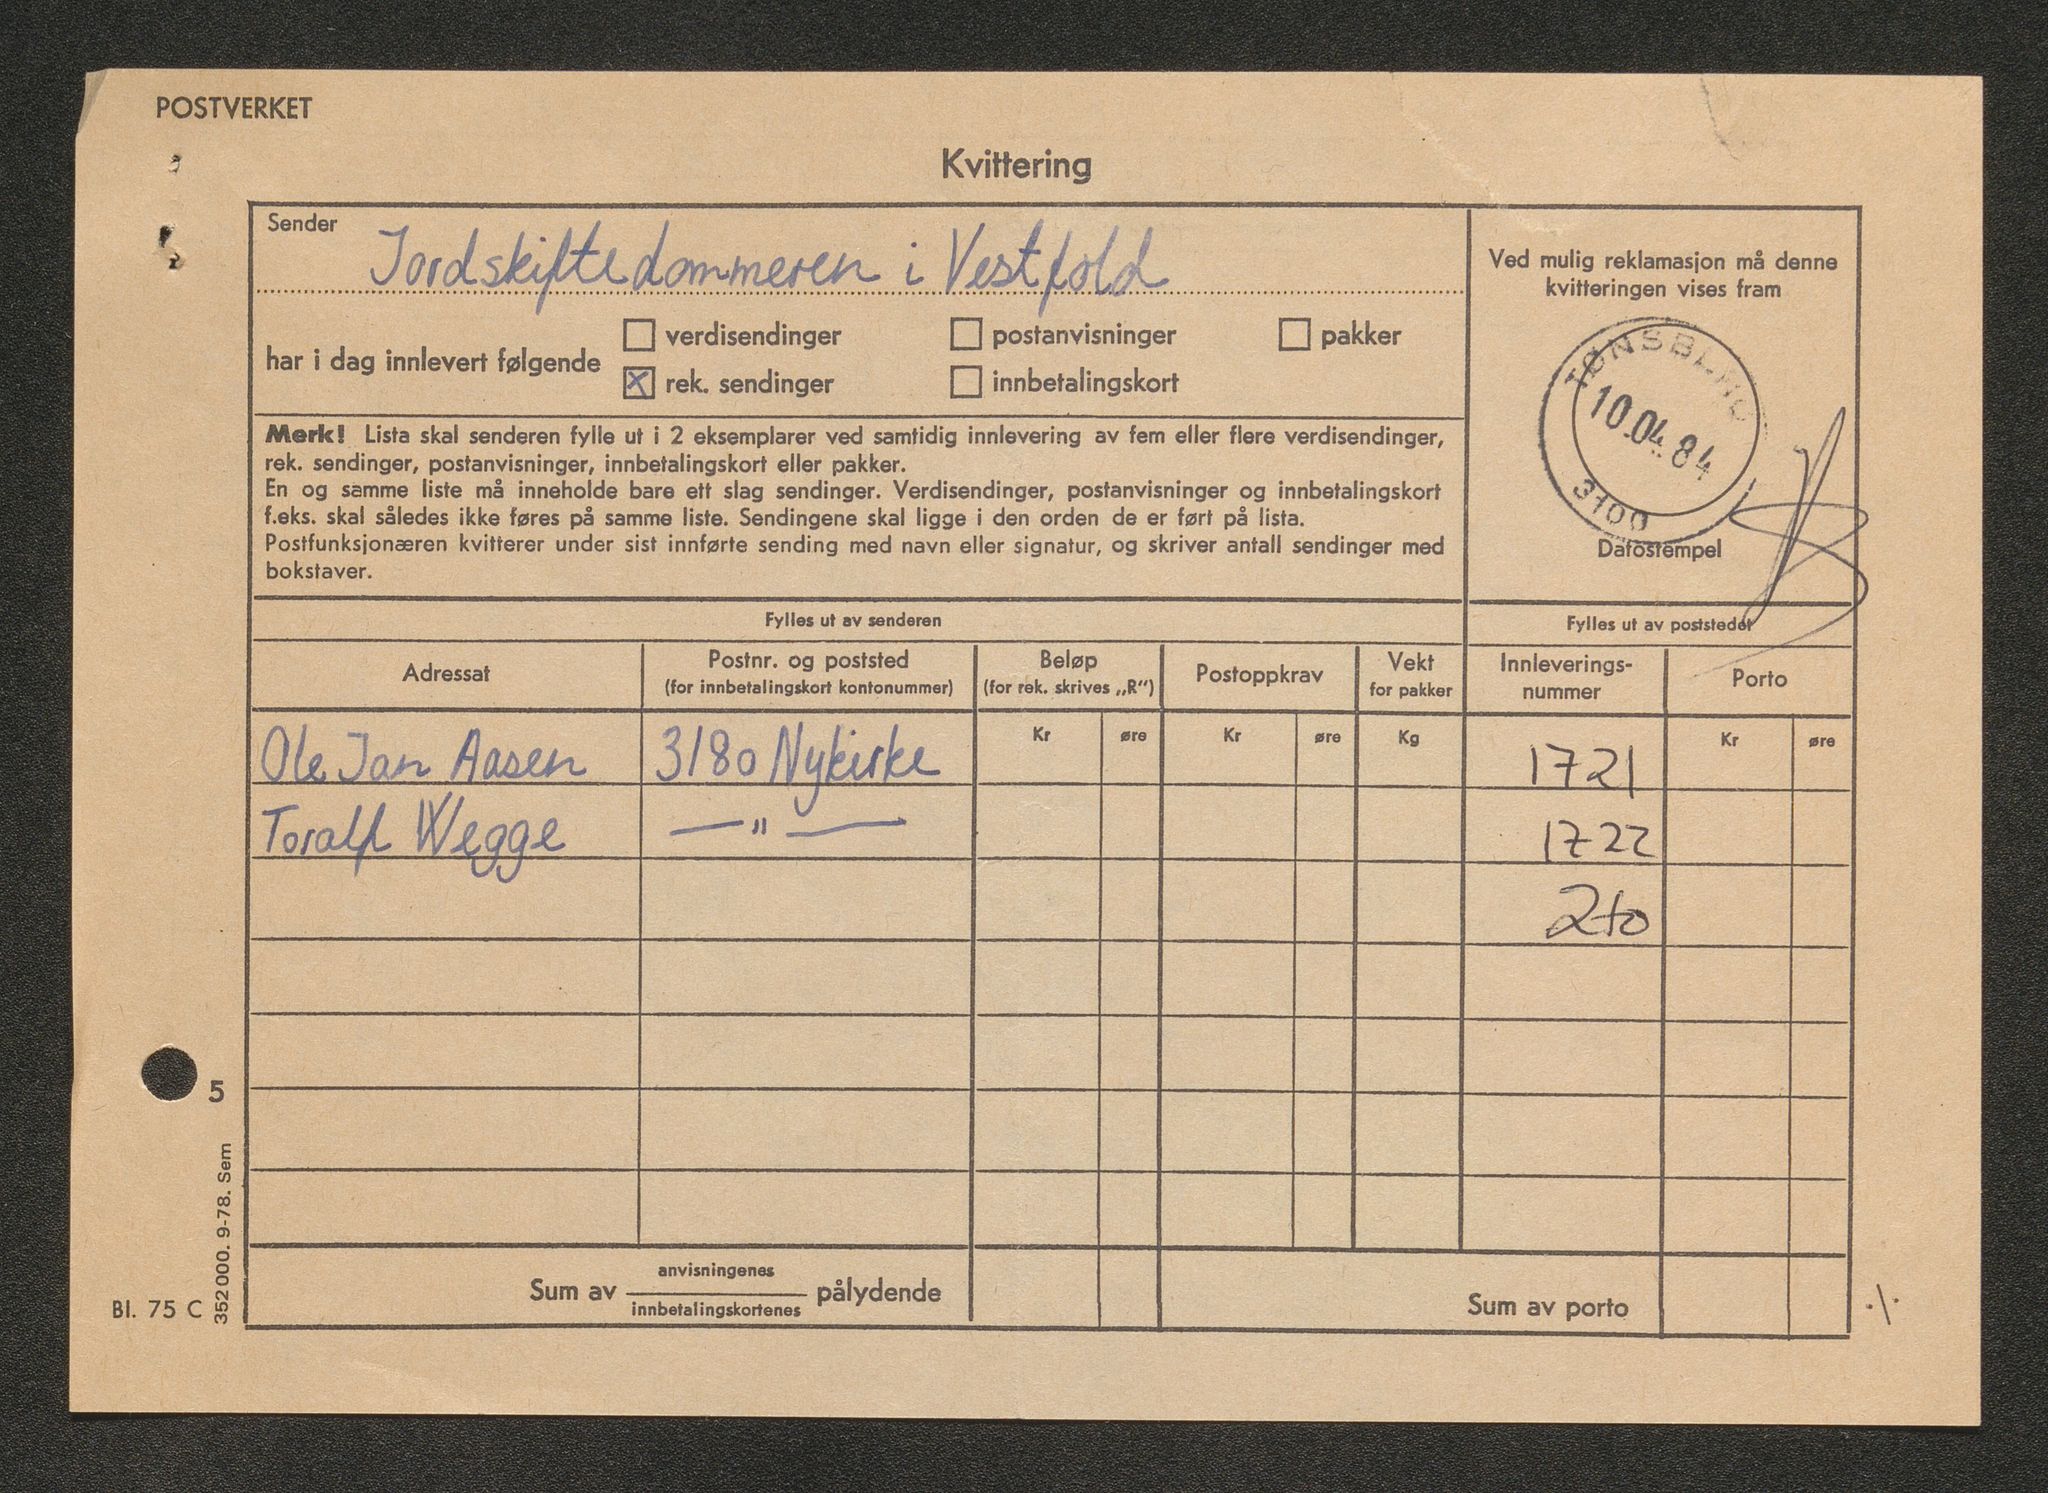 POSTVERKET
Kvittering
Sender
Jordskiftedommeren i Vestfold
har i dag innlevert følgende
verdisendinger
postanvisninger
pakker
x rek. sendinger
innbetalingskort
Ved mulig reklamasjon må denne
kvitteringen vises fram
TØNSBERG
10.04.84
3100
Datostempel
Merk! Lista skal senderen fylle ut i 2 eksemplarer ved samtidig innlevering av fem eller flere verdisendinger,
rek. sendinger, postanvisninger, innbetalingskort eller pakker.
En og samme liste må inneholde bare ett slag sendinger. Verdisendinger, postanvisninger og innbetalingskort
f.eks. skal således ikke føres på samme liste. Sendingene skal ligge i den orden de er ført på lista.
Postfunksjonæren kvitterer under sist innførte sending med navn eller signatur, og skriver antall sendinger med
bokstaver.
Fylles ut av senderen
Fylles ut av poststedet
Adressat
Postnr. og poststed
(for innbetalingskort kontonummer)
Beløp
(for rek. skrives „R“)
Postoppkrav
Vekt
for pakker
Innleverings-
nummer
Porto
Kr øre Kr øre Kg Kr øre
Ole Jan Aasen 3180 Nykirke 1721
Toralf Wegge —"— 1722
2 to
5
Sum av anvisningenes pålydende
innbetalingskortenes
Sum av porto
./.
Bl. 75 C
352000. 9-78. Sem